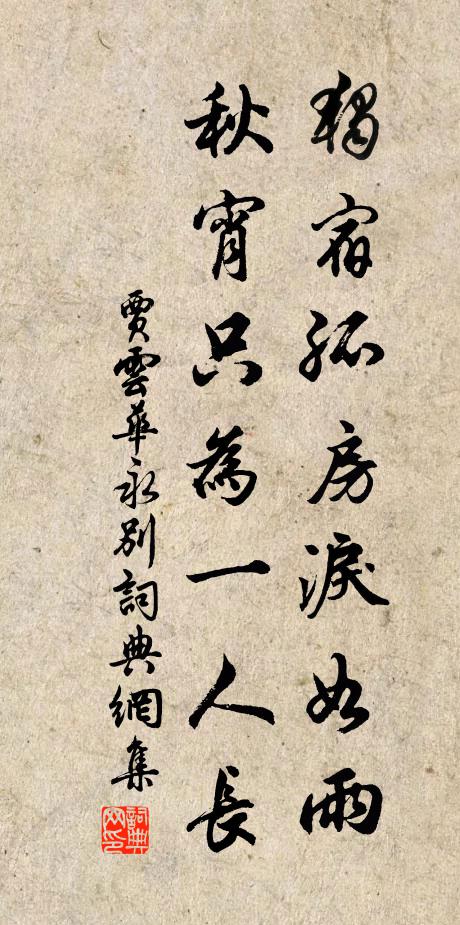 獨宿孤房淚如雨
秋宵只為一人長
賈雲華永別詞典網集
詞典
网印